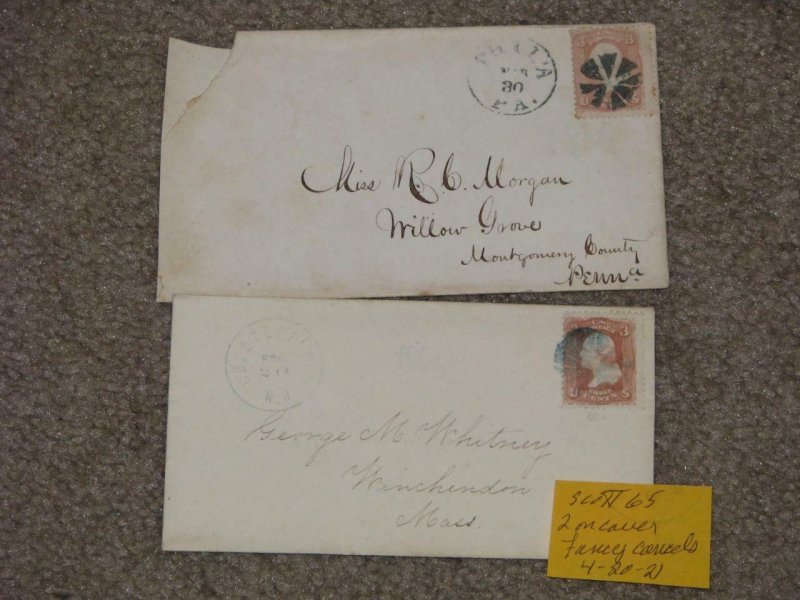 PHIL'A
MAR
30
PA.
3
Miss R. C. Morgan
Willow Grove
Montgomery County
Penna
3
THREE
CENTS
George M. Whitney
Winchendon
Mass.
Scott 65
2 on cover
Fancy Cancels
4-20-21